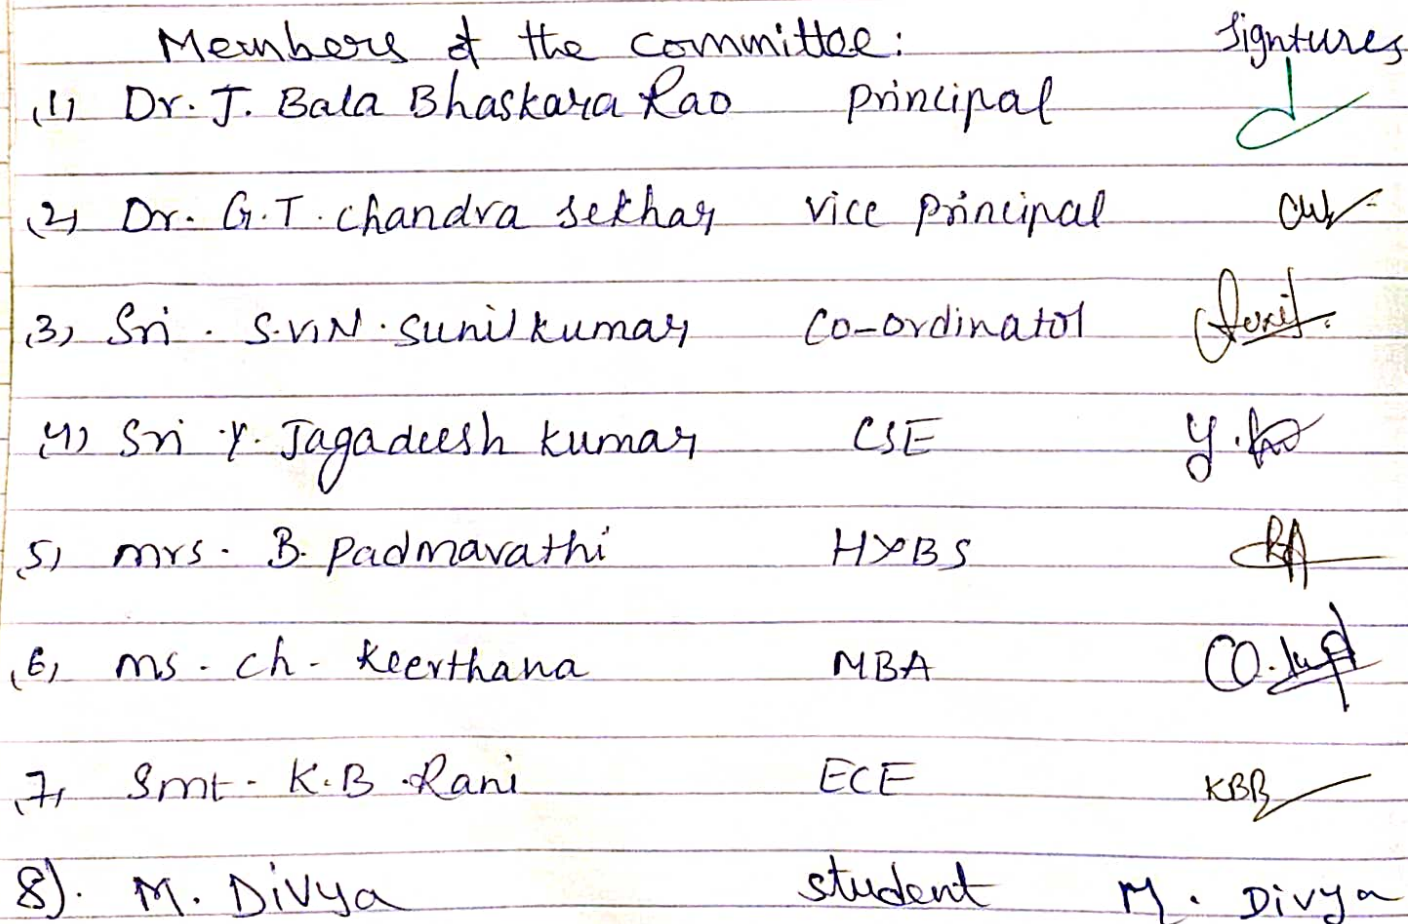 Members of the committee: Signtures
(1) Dr. J. Bala Bhaskara Rao Principal
(2) Dr. G.T. chandra sekhar vice principal
(3) Sri. S.V.N. Sunil kumar Co-ordinator
(4) Sri Y. Jagadeesh kumar CSE
(5) mrs. B. Padmavathi
(6) ms. ch. keerthana MBA
(7) Smt. K.B. Rani ECE KBR
8). M. Divya student M. Divya